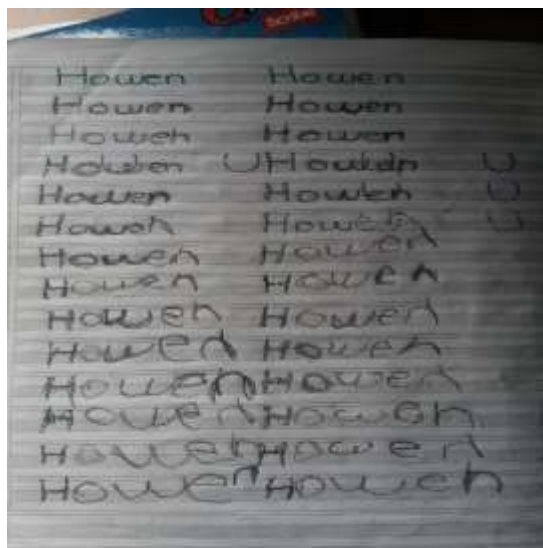 Howen Howen
Howen Howen
Howeh Howen
Howen U Howen U
Howen Howen U
Howeh Howeh U
Howen Howen
Howen Howen
Howen Howen
Howen Howen
Howen Howen
Howen Howeh
Howeh Howen
Howen Howeh